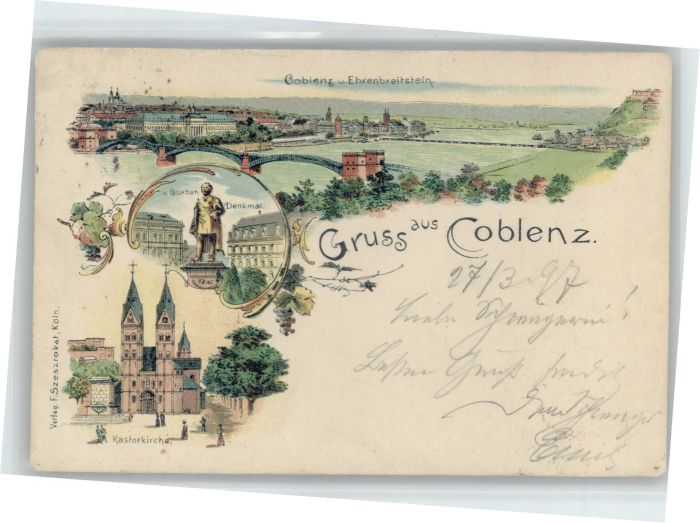 Coblenz u. Ehrenbreitstein.
v. Goeben
Denkmal.
Gruss aus Coblenz.
27/3. 97
Liebe Schwägerin!
Besten Gruß sendet
Dein Schwager
Verlag F. Szeszrokat, Köln.
Kastorkirche.